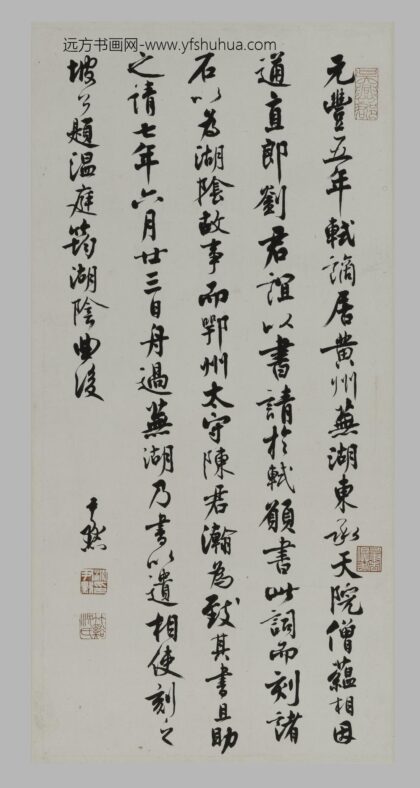 远方书画网-www.yfshuhua.com
元豐五年軾謫居黄州蕪湖東承天院僧蘊相因
通直郎劉君誼以書請於軾願書此詞而刻諸
石以為湖陰故事而鄂州太守陳君瀚為致其書且助
之請七年六月廿三日舟過蕪湖乃書以遺相使刻之
坡公題温庭筠湖陰曲後
尹默